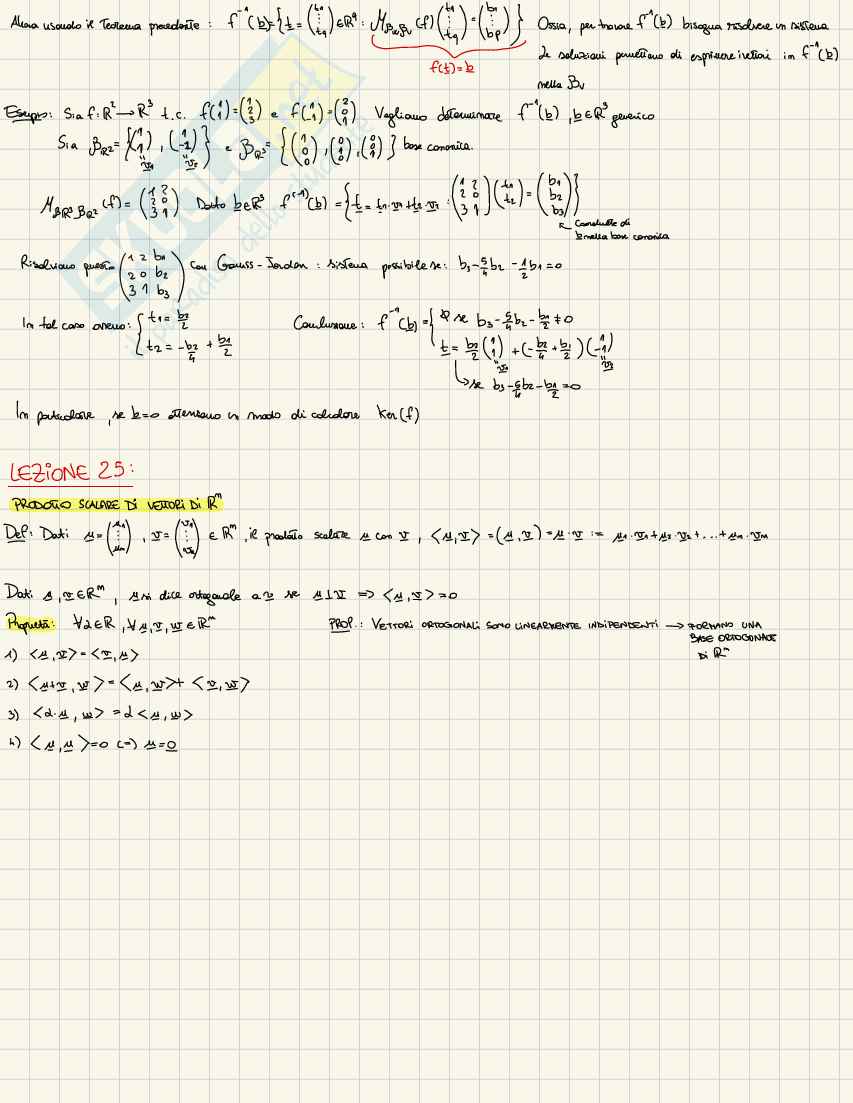 Allora usando il Teorema precedente: f⁻¹(b)={t=(t₁ ⋮ t_q)∈ℝ^q: M_{B_W B_V}(f)(t₁ ⋮ t_q)=(b₁ ⋮ b_p)} Ossia, per trovare f⁻¹(b) bisogna risolvere un sistema
f(t)=b
Le soluzioni permettono di esprimere i vettori in f⁻¹(b)
nella B_V
Esempio: Sia f: ℝ² → ℝ³ t.c. f(1 1)=(1 2 3) e f(1 -1)=(2 0 1) Vogliamo determinare f⁻¹(b), b∈ℝ³ generico
Sia B_ℝ²={(1 1), (1 -1)} e B_ℝ³={(1 0 0), (0 1 0), (0 0 1)} base canonica.
"v₁ "v₂
M_{B_ℝ³ B_ℝ²}(f)=(1 2 / 2 0 / 3 1) Dato b∈ℝ³ f⁽⁻¹⁾(b)={t=t₁·v₁+t₂·v₂ : (1 2 / 2 0 / 3 1)(t₁ t₂)=(b₁ b₂ b₃)}
↖ Coordinate di
b nella base canonica
Risolviamo questo (1 2 b₁ / 2 0 b₂ / 3 1 b₃) con Gauss-Jordan: sistema possibile se: b₃-5/4b₂-1/2b₁=0
In tal caso avremo: {t₁=b₂/2
t₂=-b₂/4+b₁/2
Conclusione: f⁻¹(b)={∅ se b₃-5/4b₂-b₁/2≠0
t=b₂/2(1 1)+(-b₂/4+b₁/2)(1 -1)
"v₁ "v₂
↳ se b₃-5/4b₂-b₁/2=0
In particolare, se b=0 otteniamo un modo di calcolare Ker(f)
LEZIONE 25:
PRODOTTO SCALARE DI VETTORI DI ℝⁿ
Def: Dati u=(u₁ ⋮ uₙ), v=(v₁ ⋮ vₙ) ∈ℝⁿ, il prodotto scalare u con v, <u,v>=(u,v)=u·v := u₁·v₁+u₂·v₂+...+uₙ·vₙ
Dati u,v∈ℝⁿ, u si dice ortogonale a v se u⊥v => <u,v>=0
Proprietà: ∀α∈ℝ, ∀u,v,w∈ℝⁿ PROP.: VETTORI ORTOGONALI SONO LINEARMENTE INDIPENDENTI → FORMANO UNA
BASE ORTOGONALE
DI ℝⁿ
1) <u,v>=<v,u>
2) <u+v,w>=<u,w>+<v,w>
3) <α·u,w>=α<u,w>
4) <u,u>=0 (=) u=0